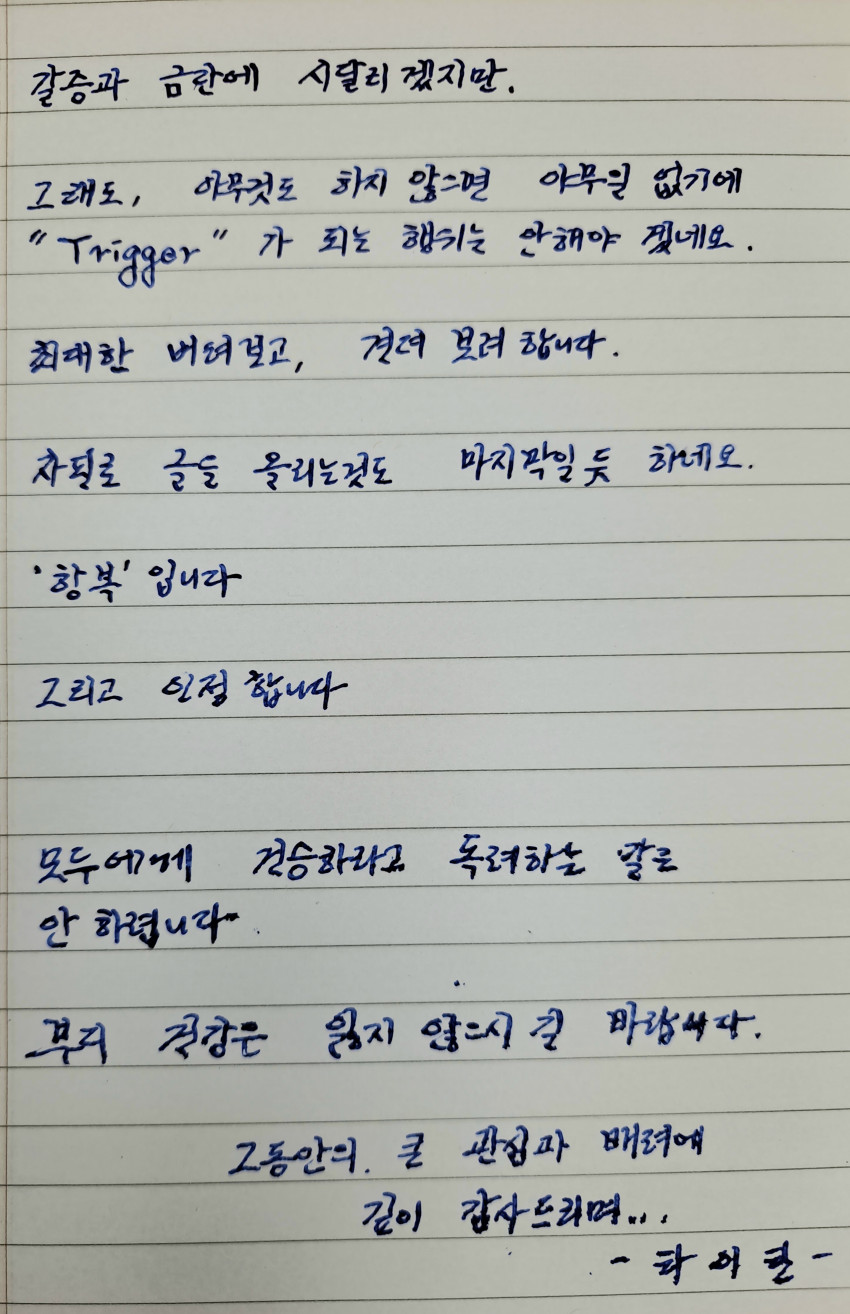 갈증과 금란에 시달리겠지만.
그래도, 아무것도 하지 않으면 아무일 없기에
"Trigger" 가 되는 행위는 안해야 겠네요.
최대한 버텨보고, 견뎌 보려 합니다.
자필로 글을 올리는것도 마지막일 듯 하네요.
'항복' 입니다
그리고 인정 합니다
모두에게 건승하라고 독려하는 말로
안 하렵니다
부디 건강은 잃지 않으시길 바랍니다.
그동안의. 큰 관심과 배려에
깊이 감사드리며...
- 파이란 -